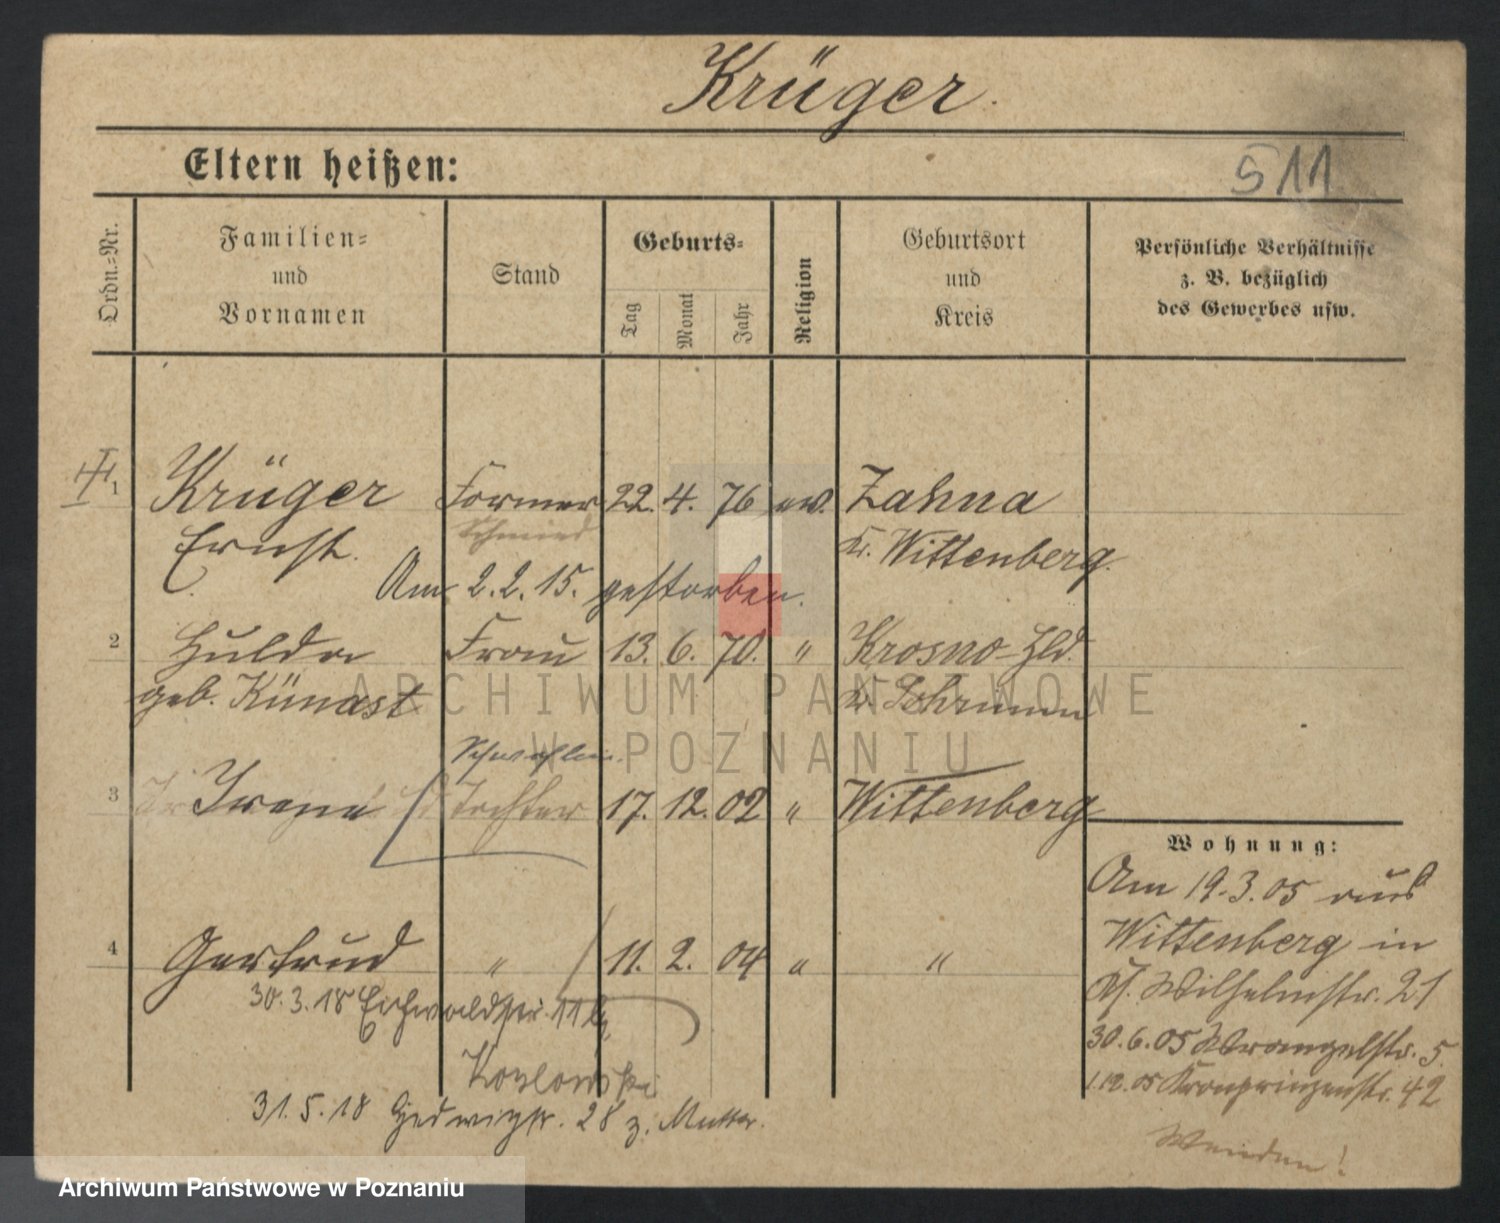 Krüger.
Eltern heißen:
511
Ordn.-Nr.
Familien-
und
Vornamen
Stand
Geburts-
Tag
Monat
Jahr
Religion
Geburtsort
und
Kreis
Persönliche Verhältnisse
z. B. bezüglich
des Gewerbes usw.
1 Krüger Former 22. 4. 76 ev. Zahna
Ernst. Schmied Kr. Wittenberg.
Am 2.2.15. gestorben.
2 Hulda Frau 13. 6. 70. " Krosno-Hld.
geb. Künast Kr. Schrimm
3 Irene Tochter 17. 12. 02 " Wittenberg
4 Gertrud " 11. 2. 04 " "
30.3.18 Eichwaldstr. 11 b/
Kozlowski
31.5.18 Hedwigstr. 28 z. Mutter.
Wohnung:
Am 19.3.05 aus
Wittenberg in
Wilhelmstr. 21
30.6.05 Wrangelstr. 5
1.12.05 Kronprinzenstr. 42
Wenden!
ARCHIWUM PAŃSTWOWE
W POZNANIU
Archiwum Państwowe w Poznaniu